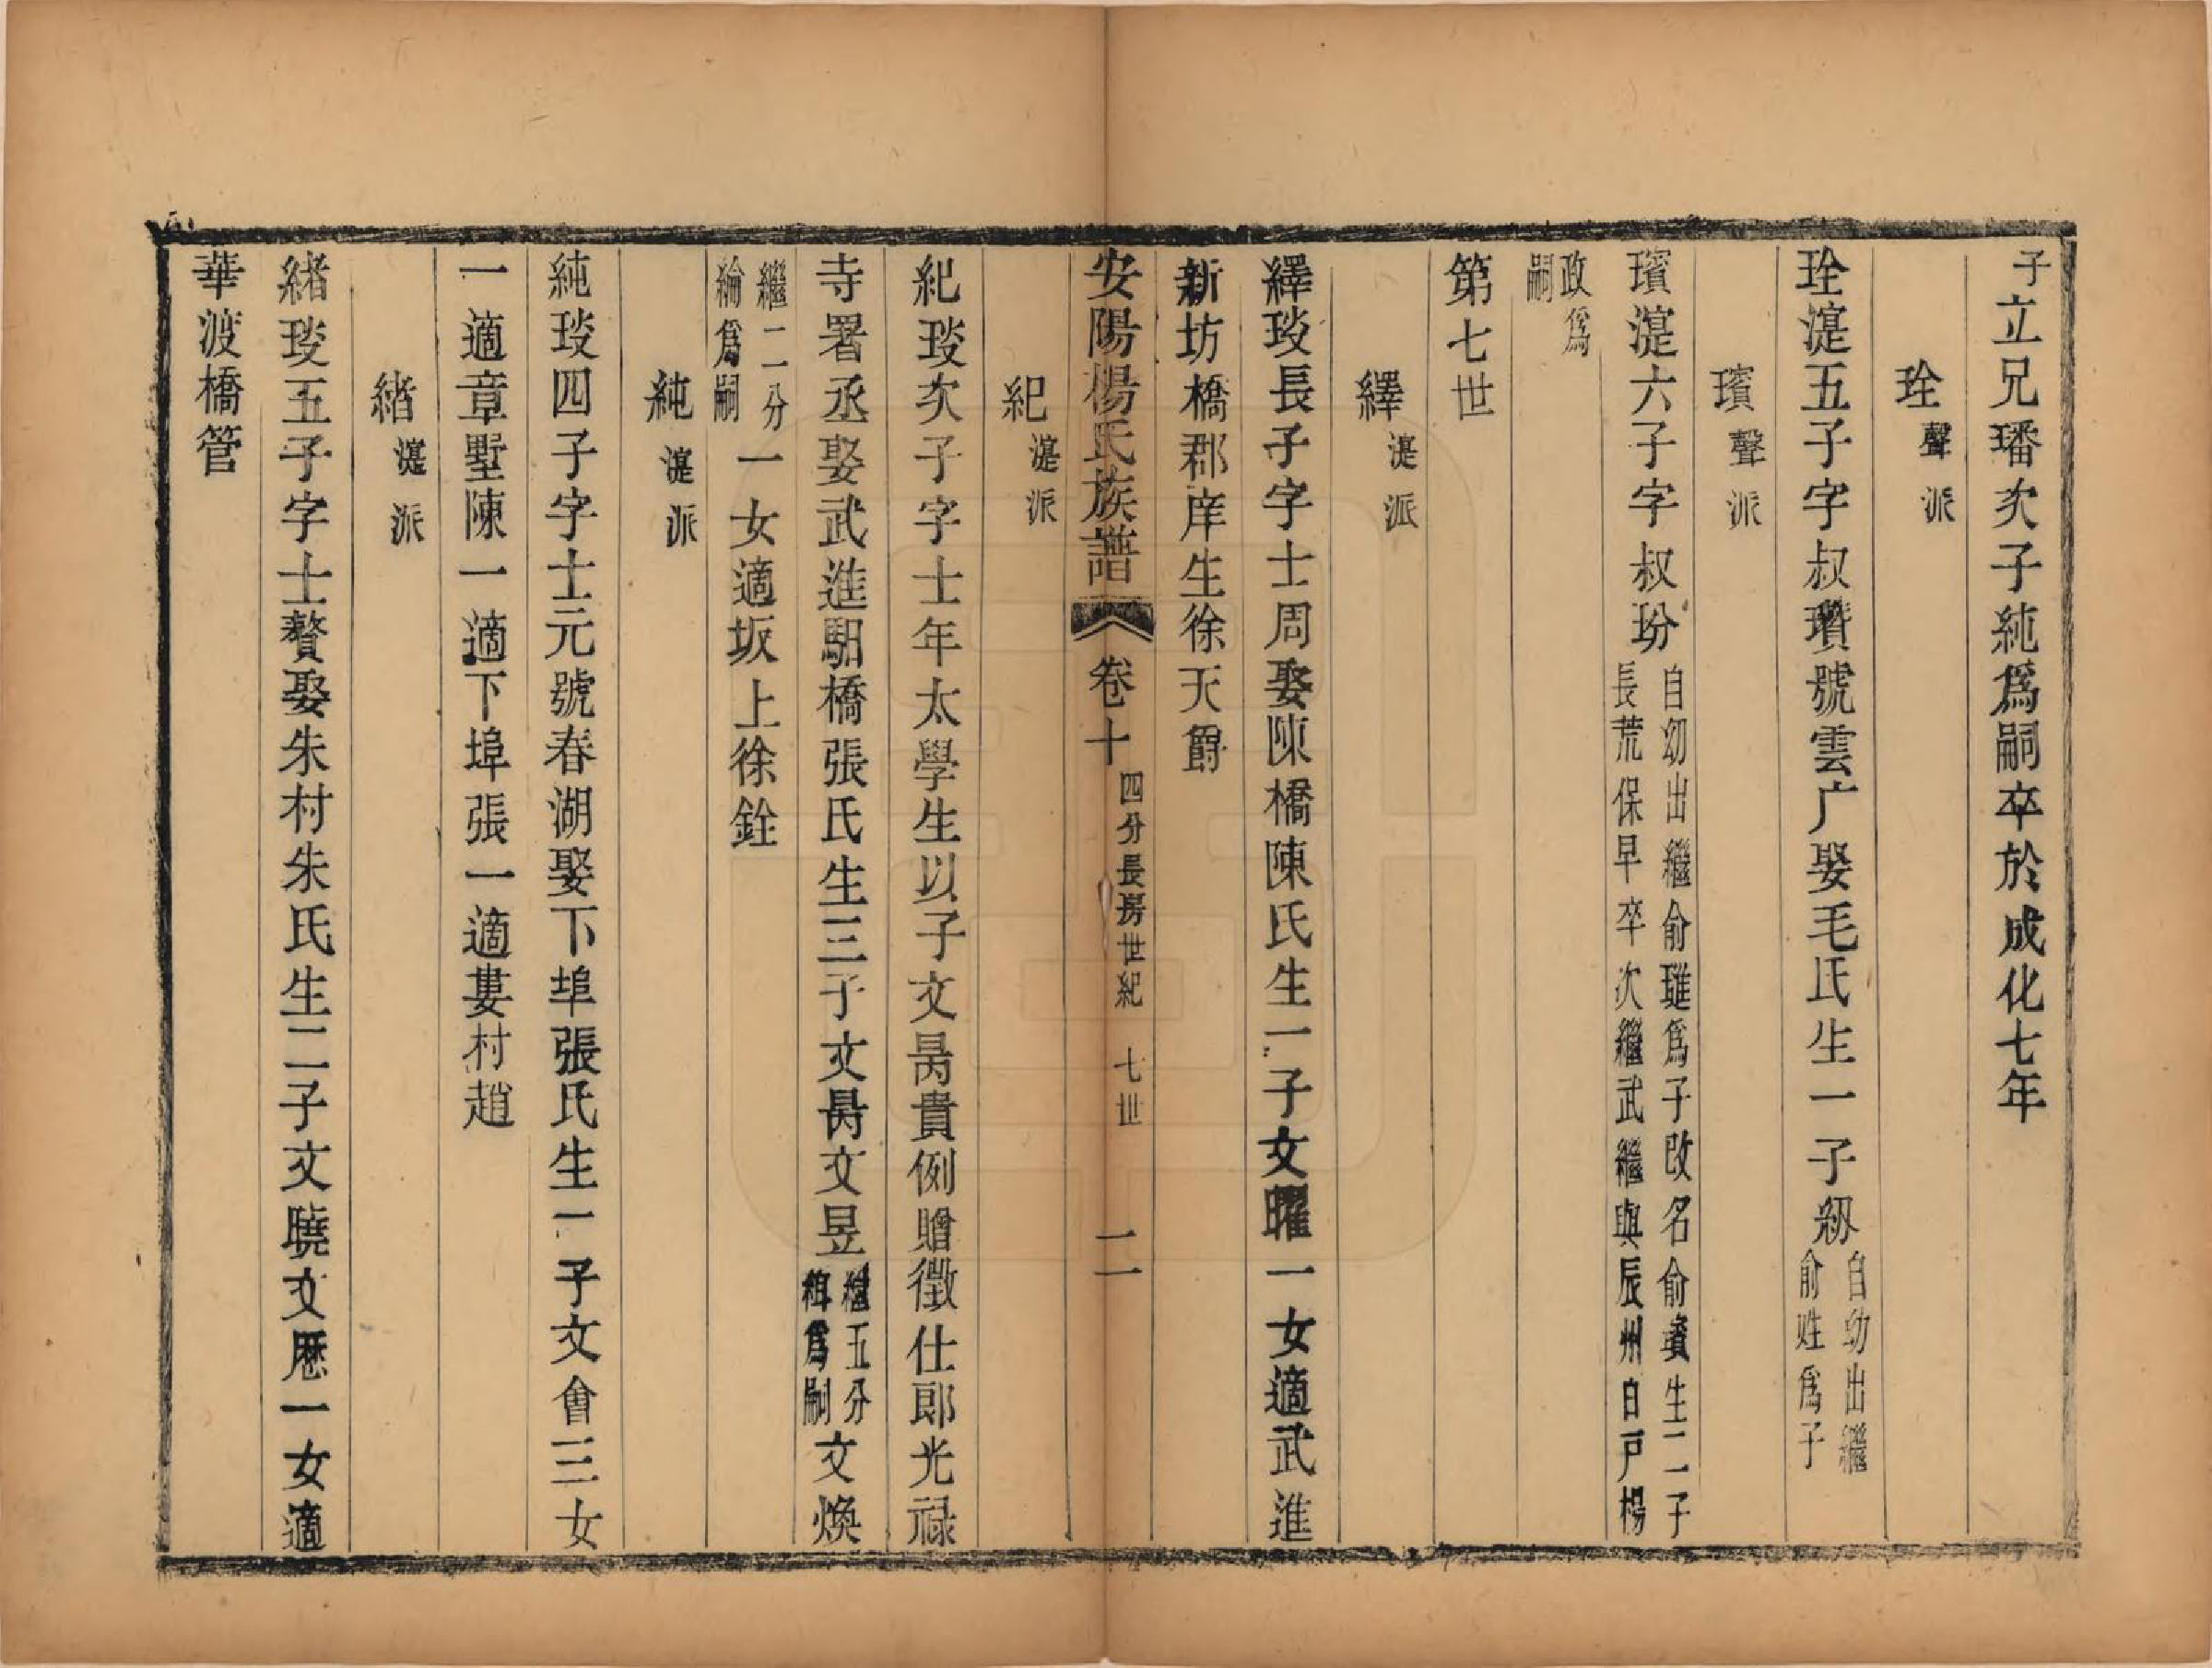 子立兄璠次子純爲嗣卒於成化七年
珄聲派
珄湜五子字叔瓚號雲广娶毛氏生一子釰自幼出繼俞姓爲子
璸聲派
璸湜六子字叔玢自幼出繼俞璡爲子改名俞賓生二子長荒保早卒次繼武繼與辰州白戸楊
政爲嗣
第七世
繹湜派
繹琰長子字士周娶陳橋陳氏生一子文曜一女適武進
新坊橋郡庠生徐天爵
安陽楊氏族譜 卷十 四分長房世紀 七世 二一
紀湜派
紀琰次子字士年太學生以子文昺貴例贈徵仕郎光禄
寺署丞娶武進馹橋張氏生三子文昺文昱繼五分緝爲嗣文煥
繼二分綸爲嗣一女適坂上徐銓
純湜派
純琰四子字士元號春湖娶下埠張氏生一子文會三女
一適章墅陳一適下埠張一適婁村趙
緒湜派
緒琰五子字士贅娶朱村朱氏生二子文曉文厯一女適
華渡橋管